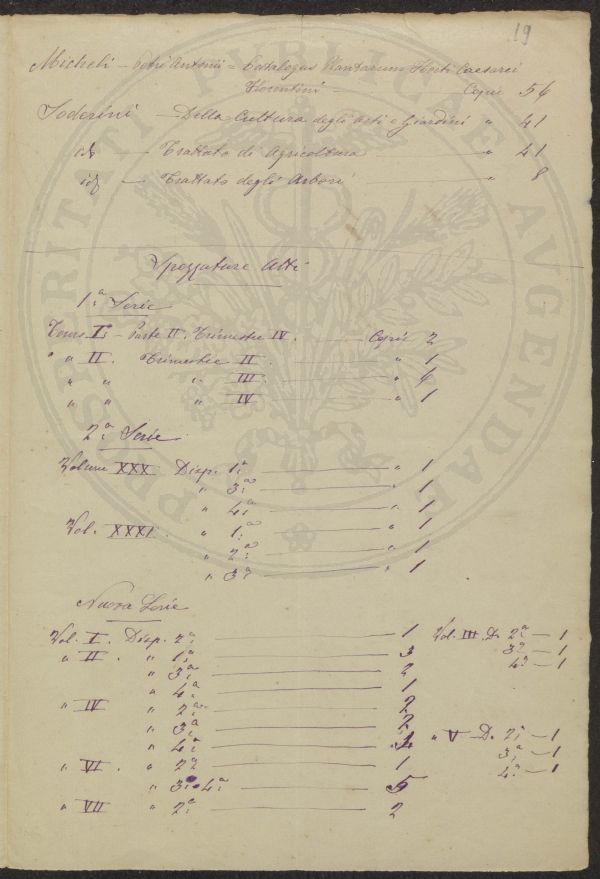 19
Micheli – Petri Antonii = Catalogus Plantarum Horti Caesarei
Florentini — Copie 54
Soderini — Della Cultura degli Orti e Giardini " 41
id — Trattato di Agricoltura " 41
id — Trattato degli Arbori " 8
Spezzature Atti
1ª Serie
Tomo I° – Parte II. Trimestre IV. — Copie 2
" " II. Trimestre II. — " 1
" " " III — " 4
" " " IV — " 1
2ª Serie
Volume XXX Disp. 1ª — " 1
" 3ª — " 1
" 4ª — " 1
Vol. XXXI. " 1ª — " 1
" 2ª — " 1
" 3ª — " 1
Nuova Serie
Vol. I. Disp. 2ª — 1
" II. " 1ª — 3
" 3ª — 2
" 4ª — 1
" IV " 2ª — 2
" 3ª — 2
" 4ª —
" VI. " 2ª — 1
" 3ª e 4ª — 5
" VII " 2ª — 2
Vol. III. D. 2ª — 1
3ª — 1
4ª — 1
" V – D. 2ª — 1
3ª — 1
4ª — 1
PROSPERITATI PUBLICAE AUGENDAE